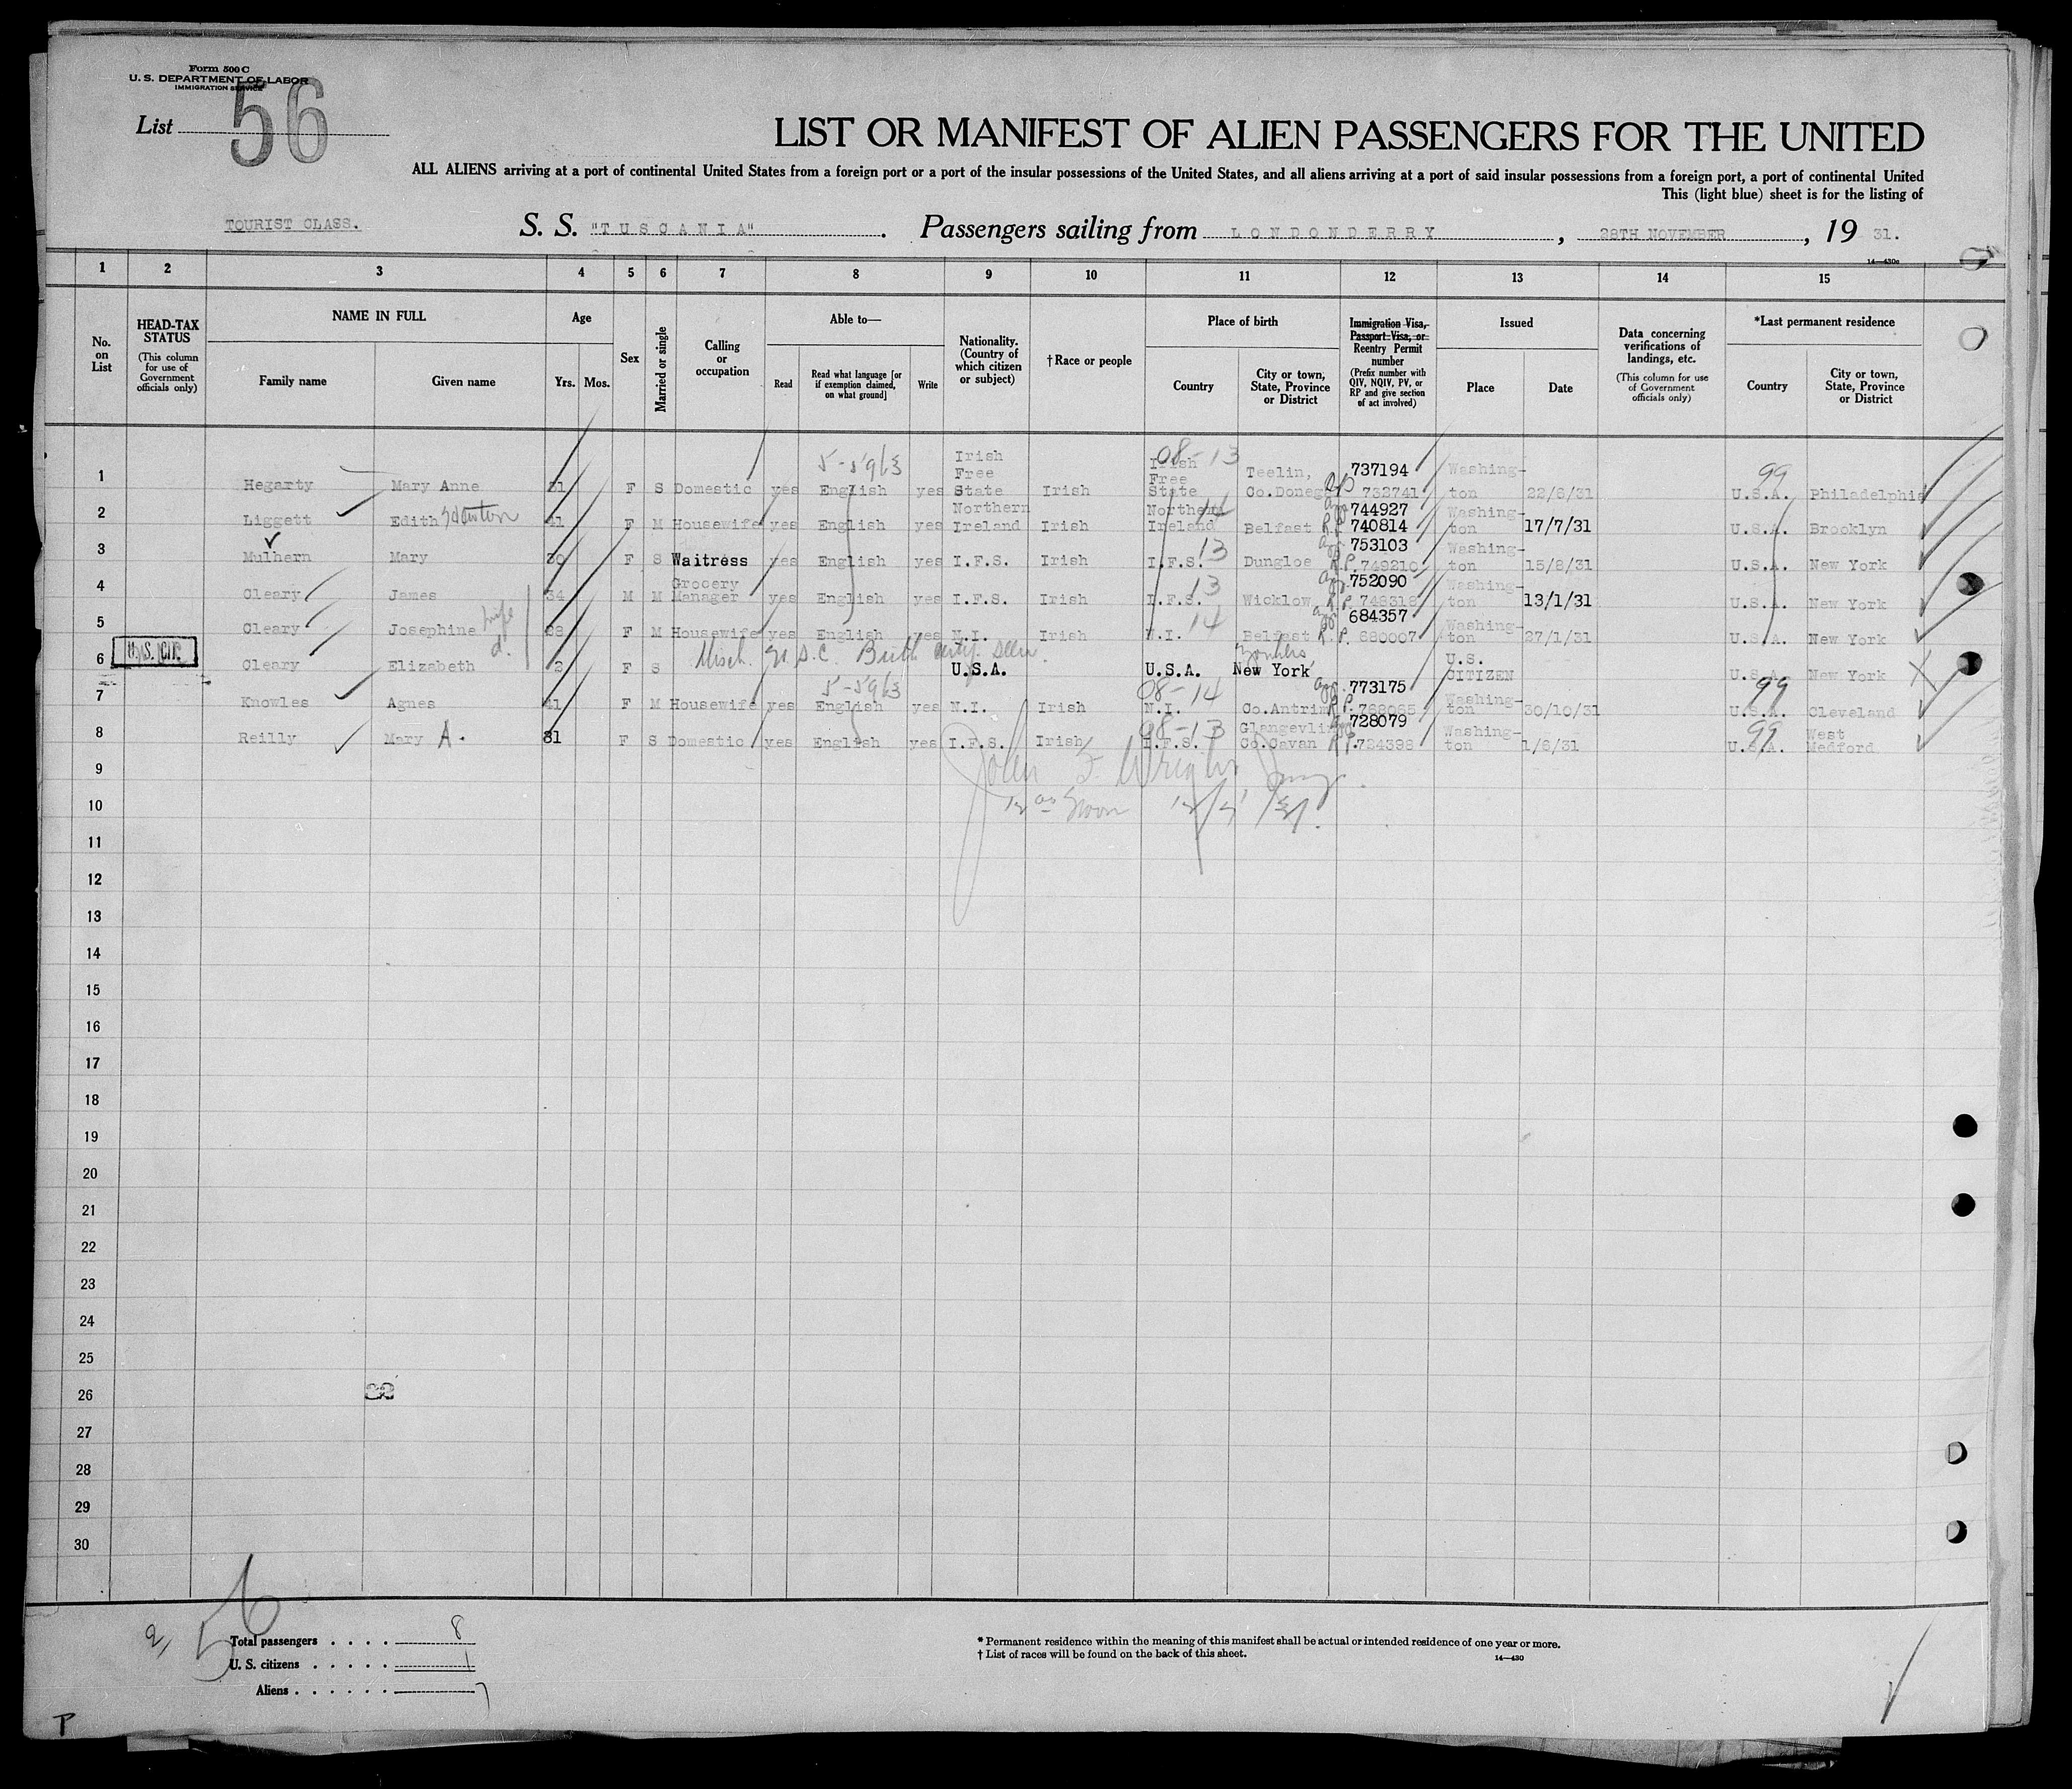 Form 500 C
U. S. DEPARTMENT OF LABOR
IMMIGRATION SERVICE
List 56
LIST OR MANIFEST OF ALIEN PASSENGERS FOR THE UNITED
ALL ALIENS arriving at a port of continental United States from a foreign port or a port of the insular possessions of the United States, and all aliens arriving at a port of said insular possessions from a foreign port, a port of continental United
This (light blue) sheet is for the listing of
TOURIST CLASS. S. S. "TUSCANIA". Passengers sailing from LONDONDERRY, 28TH NOVEMBER, 19 31.
14—430a
1 2 3 4 5 6 7 8 9 10 11 12 13 14 15
No. on List
HEAD-TAX STATUS (This column for use of Government officials only)
NAME IN FULL Family name Given name
Age Yrs. Mos.
Sex
Married or single
Calling or occupation
Able to— Read Read what language [or if exemption claimed, on what ground] Write
Nationality. (Country of which citizen or subject)
†Race or people
Place of birth Country City or town, State, Province or District
Immigration Visa, Passport Visa, or Reentry Permit number (Prefix number with QIV, NQIV, PV, or RP and give section of act involved)
Issued Place Date
Data concerning verifications of landings, etc. (This column for use of Government officials only)
*Last permanent residence Country City or town, State, Province or District
1 Hegarty Mary Anne F S Domestic yes 5-5963 English yes Irish Free State Irish 08-13 Irish Free State Teelin, Co.Donegal 737194 RP 732741 Washington 22/6/31 99 U.S.A. Philadelphia
2 Liggett Edith 41 F M Housewife yes English yes Northern Ireland Irish 14 Northern Ireland Belfast 744927 R.P. 740814 Washington 17/7/31 U.S.A. Brooklyn
3 Mulhern Mary 30 F S Waitress yes English yes I.F.S. Irish 13 I.F.S. Dungloe 753103 R.P. 749210 Washington 15/8/31 U.S.A. New York
4 Cleary James 34 M M Grocery Manager yes English yes I.F.S. Irish 13 I.F.S. Wicklow 752090 R.P. 748318 Washington 13/1/31 U.S.A. New York
5 Cleary Josephine wife F M Housewife yes English yes N.I. Irish 14 N.I. Belfast 684357 R.P. 680007 Washington 27/1/31 U.S.A. New York
6 U.S. CIT. Cleary Elizabeth d. 3 F S U.S.C. Birth cert. seen. U.S.A. U.S.A. Yonkers New York U.S. CITIZEN U.S.A. New York
7 Knowles Agnes 41 F M Housewife yes 5-5963 English yes N.I. Irish 08-14 N.I. Co.Antrim 773175 R.P. 768065 Washington 30/10/31 99 U.S.A. Cleveland
8 Reilly Mary A. 31 F S Domestic yes English yes I.F.S. Irish 08-13 I.F.S. Glangevlin Co.Cavan 728079 R.P. 724398 Washington 1/6/31 99 U.S.A. West Medford
9 John F. Wright
10 Noon
11
12
13
14
15
16
17
18
19
20
21
22
23
24
25
26
27
28
29
30
56
Total passengers 8
U. S. citizens 1
Aliens 7
* Permanent residence within the meaning of this manifest shall be actual or intended residence of one year or more.
† List of races will be found on the back of this sheet.
14—430
P